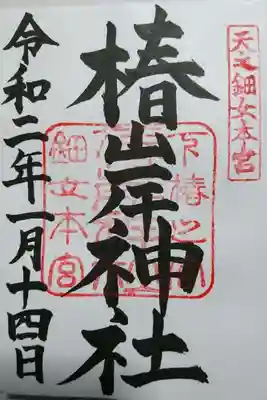 天之鈿女本宮
椿岸神社
鈿女本宮
令和二年一月十四日